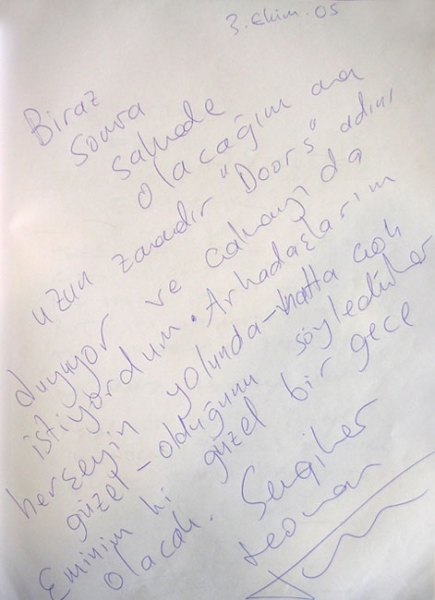 3. Ekim. 05
Biraz
sonra
sahnede
olacağım ama
uzun zamandır "Doors" adını
duyuyor ve çalmayı da
istiyordum. Arkadaşlarım
herşeyin yolunda - hatta çok
güzel - olduğunu söylediler
Eminim ki güzel bir gece
olacak. Sevgiler
Teoman